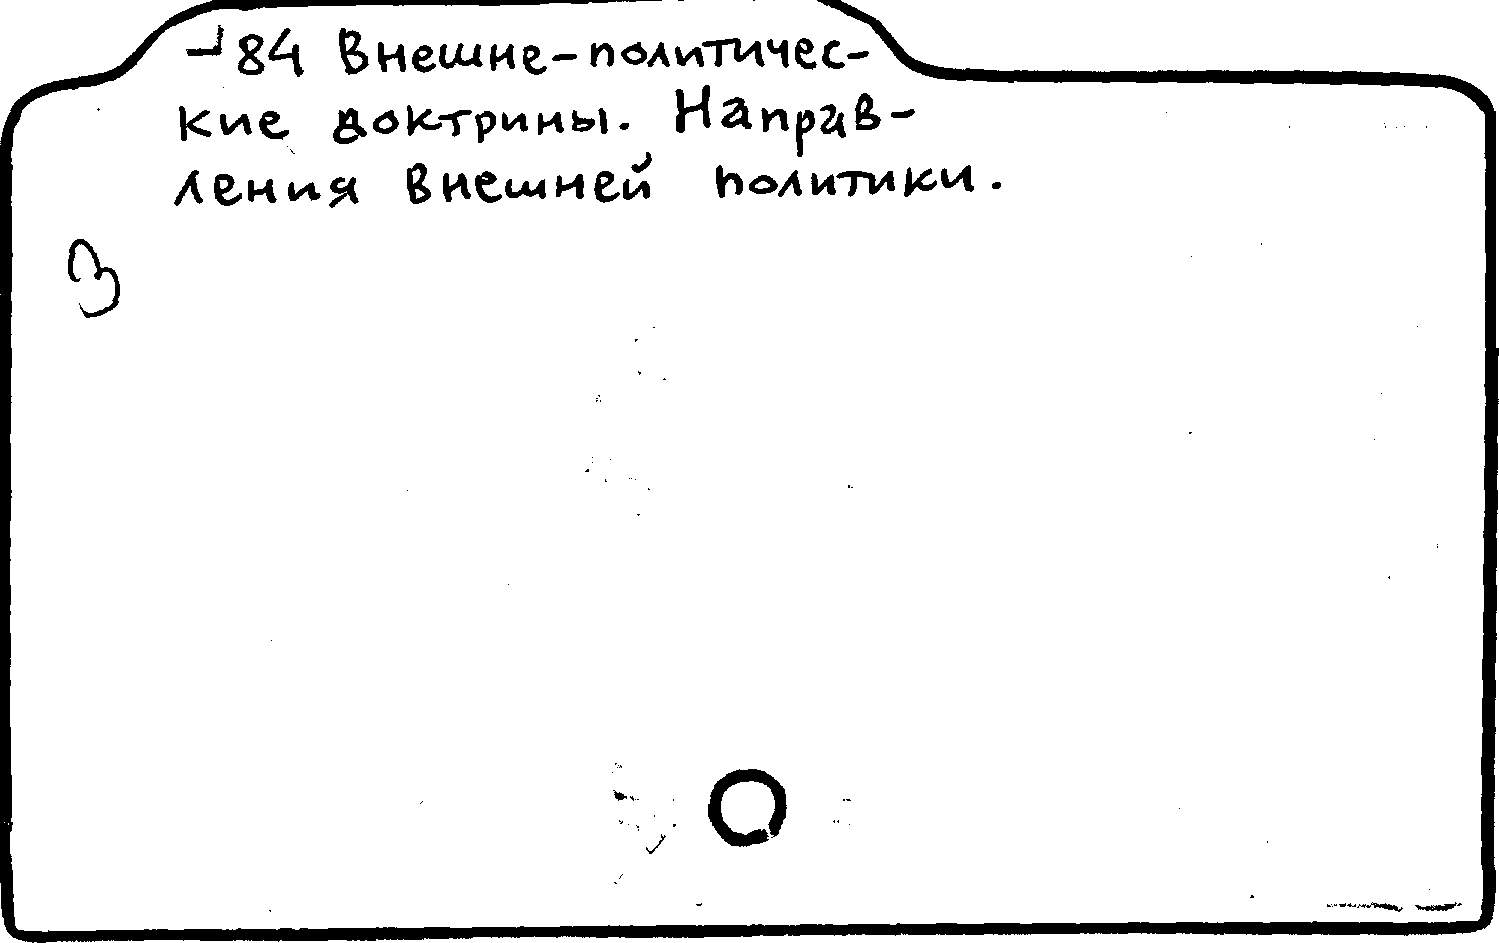 ┘84 Внешне-политичес-
кие доктрины. Направ-
ления внешней политики.
3